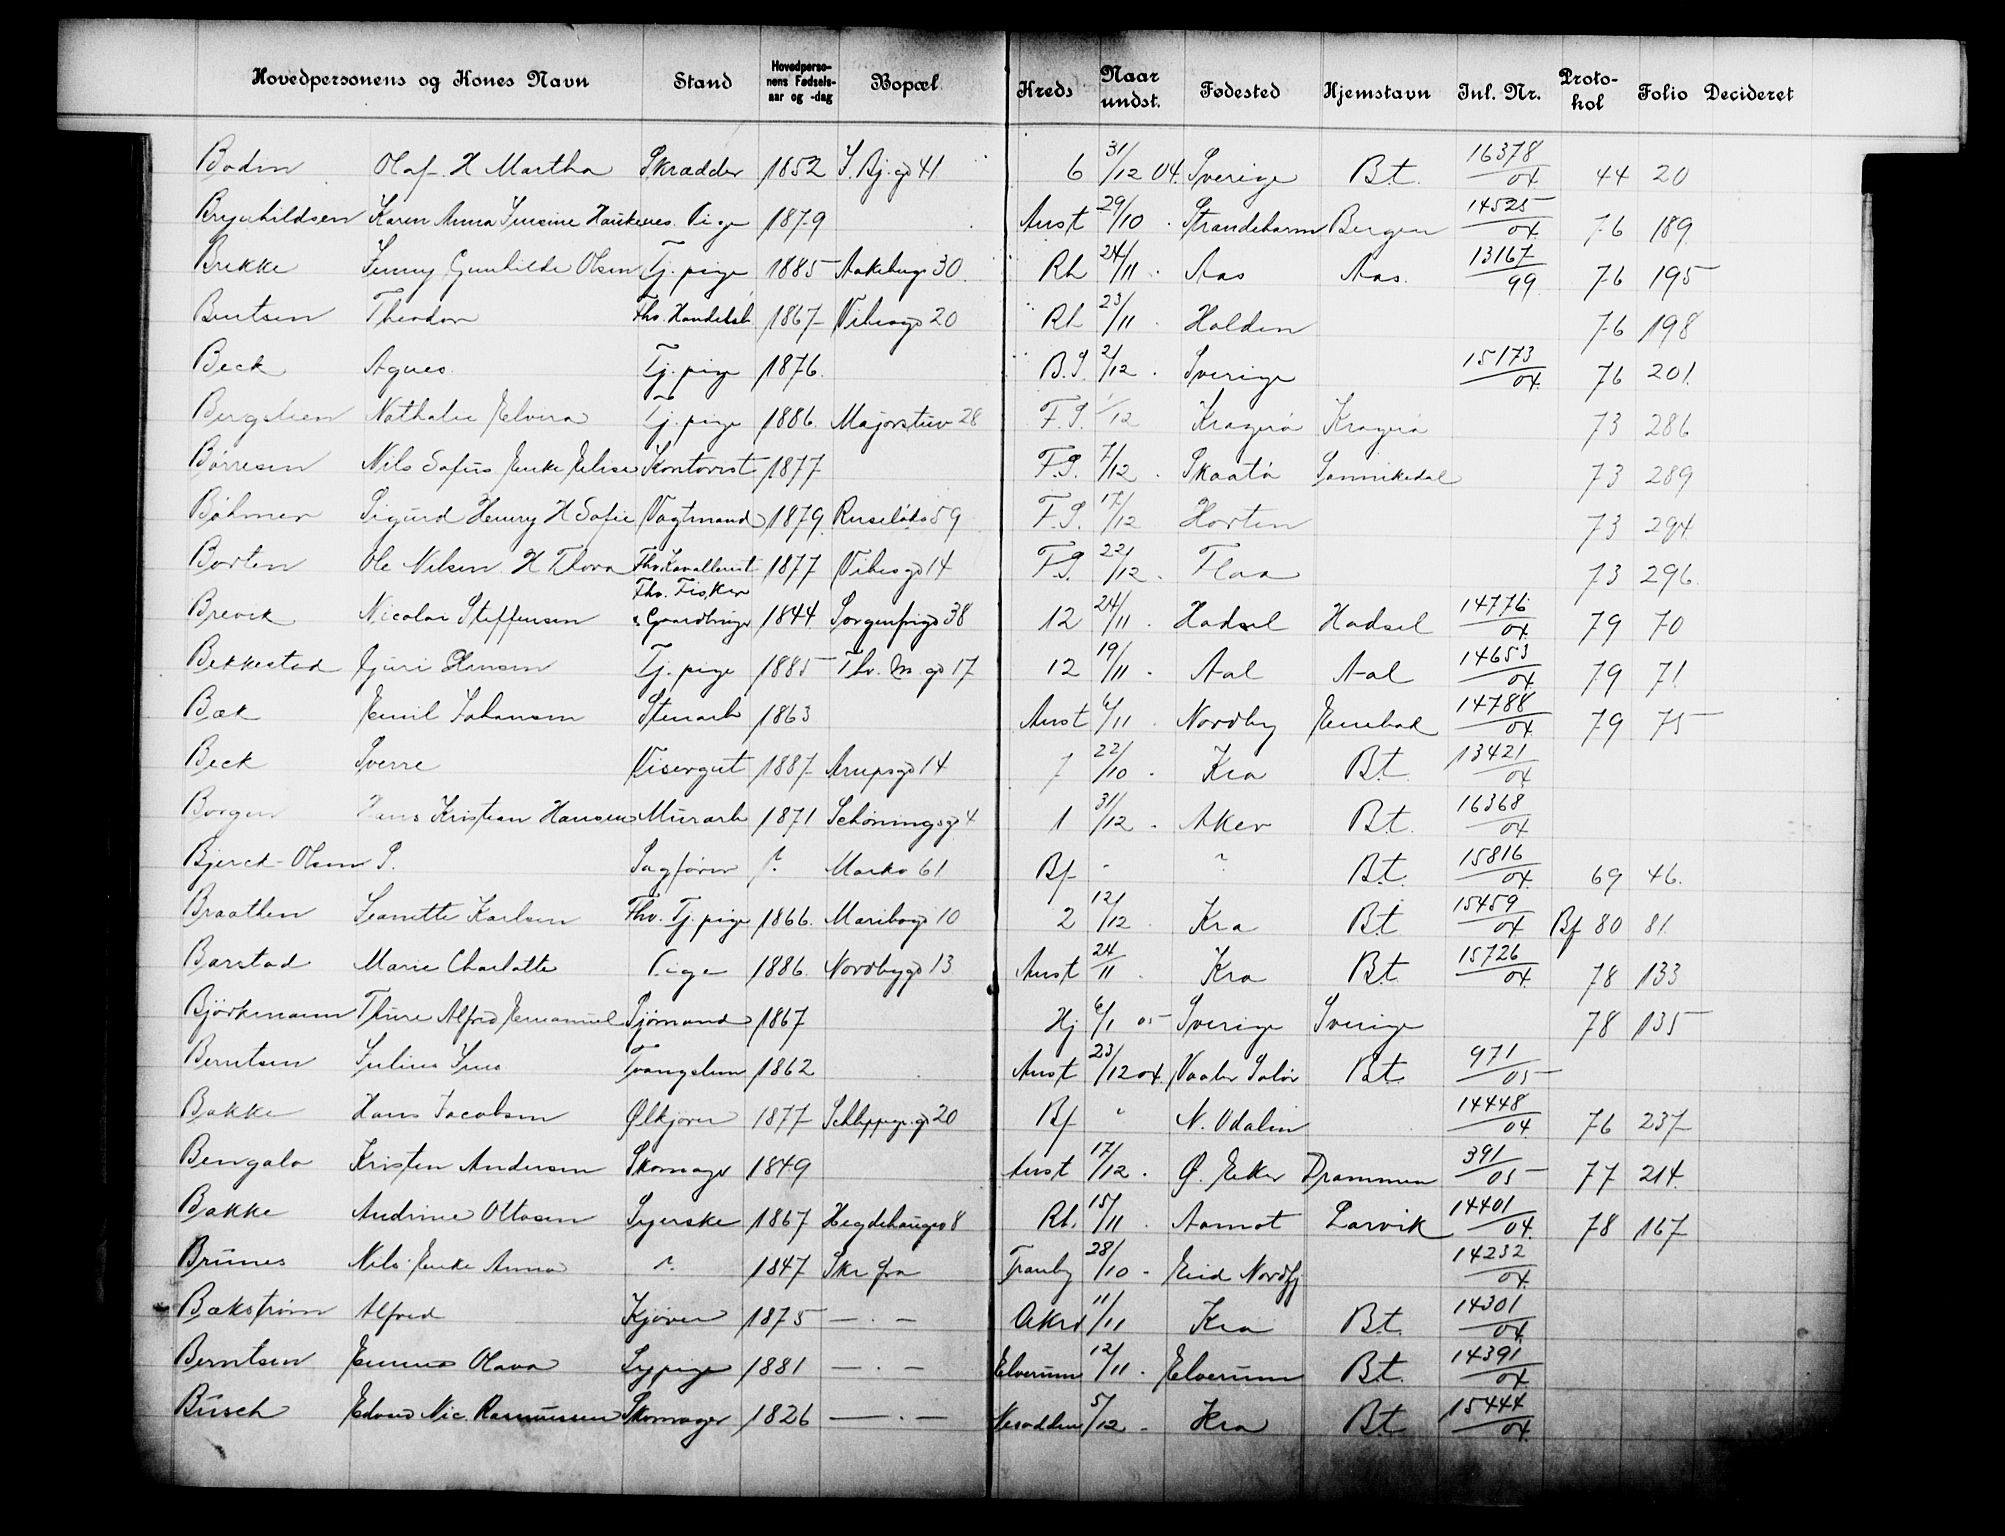 Hovedpersonens og Kones Navn Stand Hovedpersonens Fødselsaar og -dag Bopæl Kreds Naar undst. Fødested Hjemstavn Inl. Nr. Protokol Folio Decideret
Bodin Olaf H Martha Skrædder 1852 S. Bj. gd 41 6 31/12 04. Sverige B.t. 16378/04. 44 20
Brynhildsen Karen Anna Jensine Haukenes. Pige 1879 Anst 29/10 . Strandebarm Bergen 14525/04. 76 189.
Brekke Jenny Gunhilde Olsen Tj. pige 1885 Aakebergv 30 Rh 24/11 . Aas Aas. 13167/99 76 195
Bentsen Theodor Fhv. Handelsb 1867 Vibesgd 20 Rh 23/11 . Halden 76 198
Beck Agnes. Tj. pige 1876. B.S. 2/12 . Sverige 15173/04. 76 201.
Bergstien Nathalie Elvira Tj. pige 1886. Majorstuv 28 F.S. 1/12 Kragerö Kragerö 73 286
Börresen Nils Sofus Enke Elise Kontorist 1877 F.S. 7/12 . Skaatö Sannikedal 73 289
Böhmer Sigurd Henry H Sofie Vagtmand 1879. Ruseløkv 59 F.S. 17/12 Horten 73 294
Borten Ole Nilsen H Thora Fhv. Kavallerist 1877 Vibesgd 14 F.S. 22/12 . Flaa 73 296.
Brevik Nicolai Steffensen Fhv. Fisker & Gaardbruger 1844. Sorgenfrigd 38 12 24/11 . Hadsel Hadsel 14776/04. 79 70
Bekkestad Guri Olsen Tj. pige 1885 Thv. M. gd 17 12 19/11 . Aal Aal 14653/04. 79 71.
Bæk Emil Johansen Stenarb 1863 Anst 6/11 . Nordby Enebak 14788/04. 79 75
Beck Sverre Visergut 1887 Arupsgd 14 7 22/10 . Kra B.t. 13421/04.
Borgen Hans Kristian Hansen Murarb 1871 Schöningsgd 4 1 31/12 . Aker B.t. 16368/04.
Bjerck-Olsen P. Sagförer ? Markv 61. Bf " ? B.t. 15816/04. 69 46.
Braathen Jeanette Karlsen Fhv. Tj. pige 1866. Maribogd 10 2 12/12 . Kra B.t. 15459/04. Bf 80 81.
Barstad Marie Charlotte Pige 1886. Nordbygd 13. Anst 24/11 . Kra B.t. 15726/04. 78 133
Björkmann Thure Alfred Emanuel Sjömand 1867 Hj 6/1 05 Sverige Sverige 78 135
Berntsen Julius Jens Tvangslem 1862 Anst 23/12 04. Vaaler Solör B.t. 971/05
Bakke Hans Jacobsen Ølkjörer 1877 Schleppegr. gd 20 Bf " N. Odalen 14448/04. 76 237
Bengala Kristen Andersen Skomager 1849 Anst 17/12 . Ø. Eker Drammen 391/05 77 214.
Bakke Andrine Ottosen Syerske 1867 Hegdehaugsv 8 Rh. 15/11 . Aamot Larvik 14401/04. 78 167
Brunes Nils. Enke Anna ? 1847 Skr fra Tranby 28/10 . Eid Nordfj 14232/04.
Bækström Alfred Kjörer 1875 — . — Aker 11/11 Kra B.t. 14301/04.
Berntsen Emma Olava Sypige 1881 — . — Elverum 12/11 . Elverum B.t. 14391/04.
Busch Edvard Nic. Rasmussen Skomager 1826 — . — Nesodden 5/12 . Kra B.t. 15444/04.